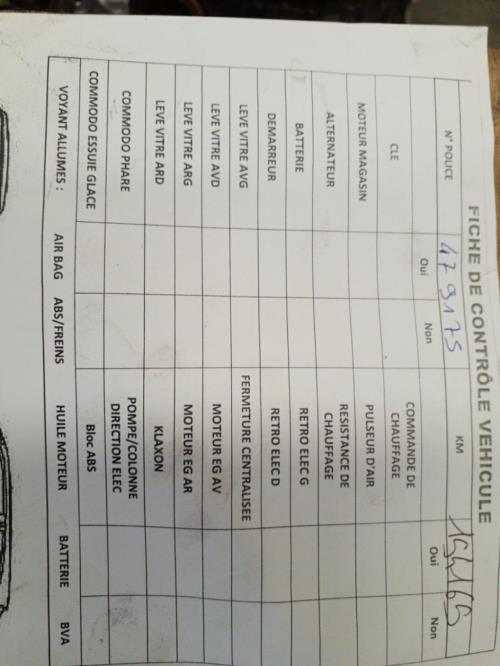 FICHE DE CONTRÔLE VEHICULE
N° POLICE 479175 KM
Oui Non Oui Non
CLE COMMANDE DE CHAUFFAGE
MOTEUR MAGASIN PULSEUR D'AIR
ALTERNATEUR RESISTANCE DE CHAUFFAGE
BATTERIE RETRO ELEC G
DEMARREUR RETRO ELEC D
LEVE VITRE AVG FERMETURE CENTRALISEE
LEVE VITRE AVD MOTEUR EG AV
LEVE VITRE ARG MOTEUR EG AR
LEVE VITRE ARD KLAXON
COMMODO PHARE POMPE/COLONNE DIRECTION ELEC
COMMODO ESSUIE GLACE Bloc ABS
VOYANT ALLUMES : AIR BAG ABS/FREINS HUILE MOTEUR BATTERIE BVA